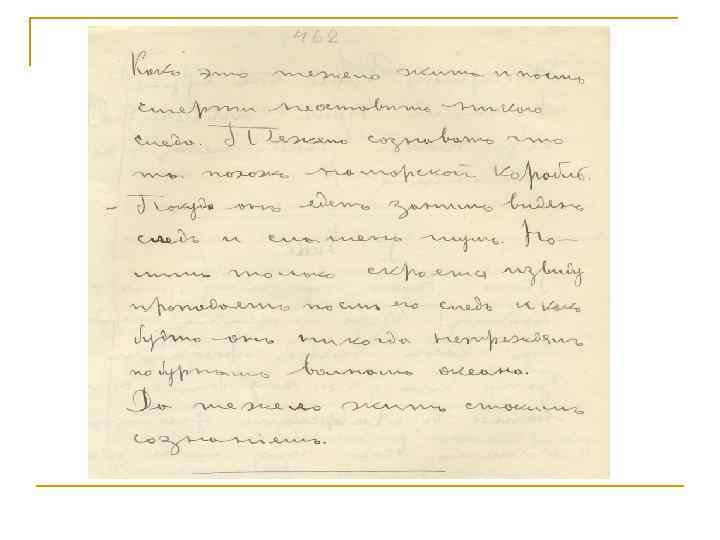 462
Какъ это тежело жить и посль
смерти неоставить никого
следа. Тежело сознавать что
ты похожъ на морской корабль.
– Покуда онъ едетъ занимъ виденъ
следъ и спомена путь. Но
лишь только скроется извиду
проподаетъ посль его следъ и какъ
будто онъ никогда непрежалъ
по бурнымъ волнамъ океана.
Да тежело жить стокимъ
сознанiемъ.